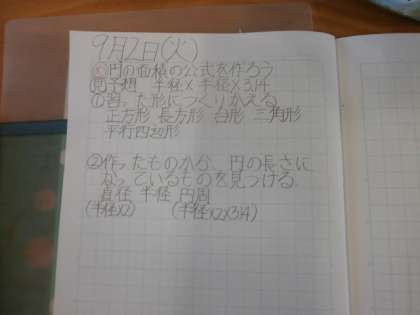 9月2日(火)
円の面積の公式を作ろう
予想 半径×半径×3.14
①習った形につくりかえる
正方形 長方形 台形 三角形
平行四辺形
②作ったものから、円の長さに
なっているものを見つける。
直径 半径 円周
(半径×2) (半径×2×3.14)